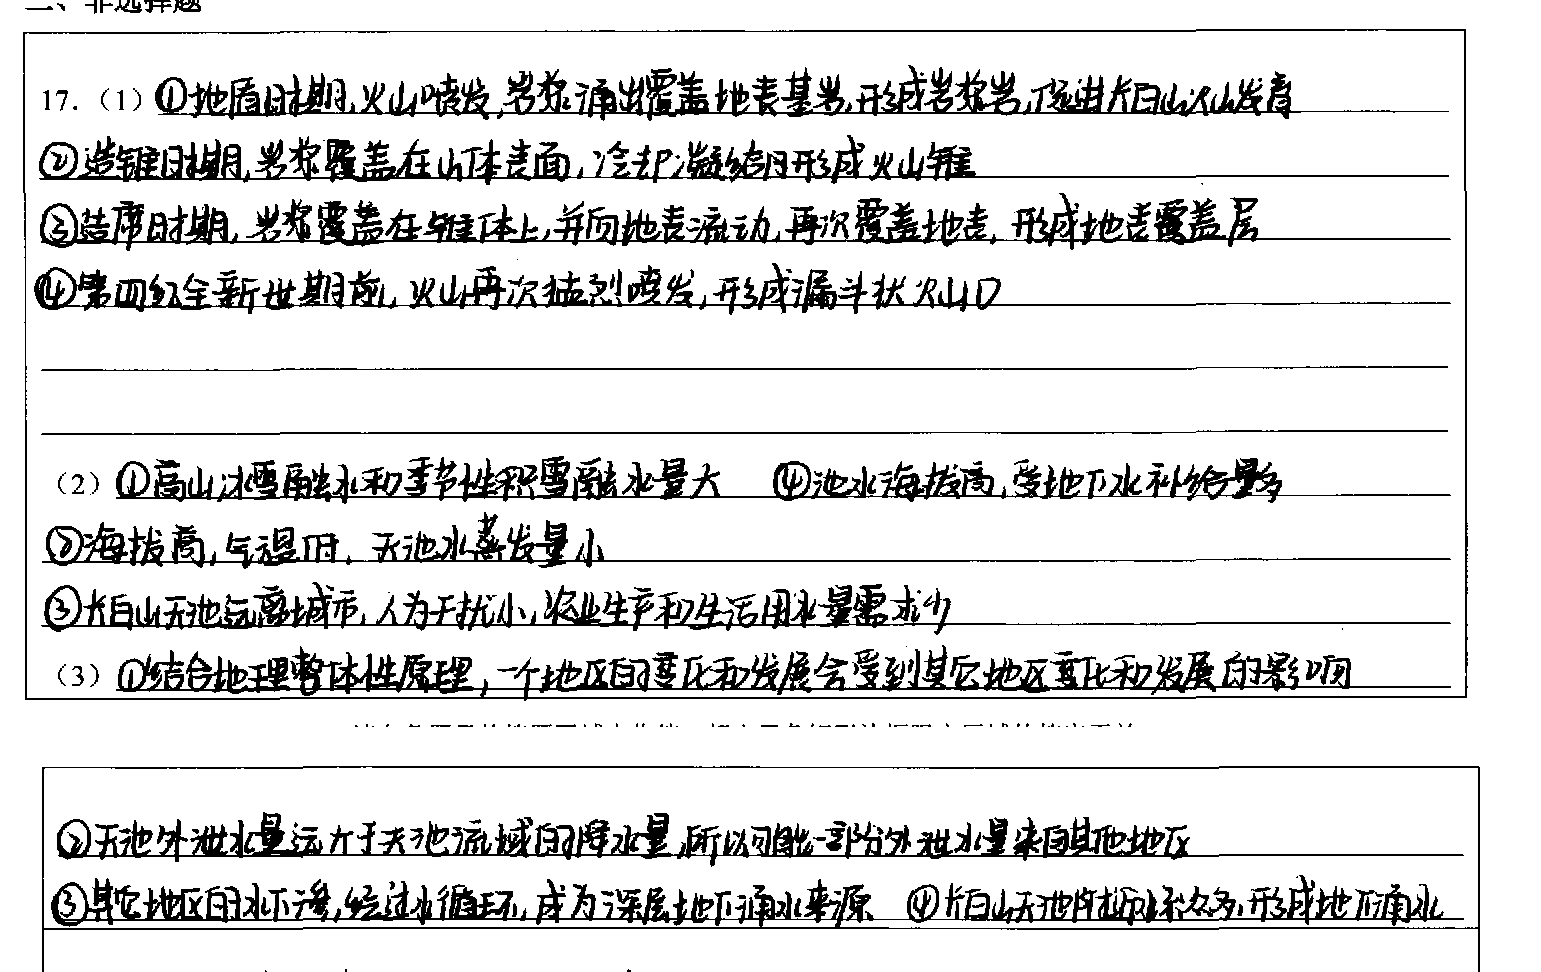 二、非选择题
17.（1）①地盾时期,火山喷发,岩浆涌出覆盖地表基岩,形成岩浆岩,促进长白山火山发育
②造锥时期,岩浆覆盖在山体表面,冷却凝结后形成火山锥
③造席时期,岩浆覆盖在锥体上,并向地表流动,再次覆盖地表,形成地表覆盖层
④第四纪全新世期前,火山再次猛烈喷发,形成漏斗状火山口
（2）①高山冰雪融水和季节性积雪融水量大 ④池水海拔高,受地下水补给量多
②海拔高,气温低,天池水蒸发量小
③长白山天池远离城市,人为干扰小,农业生产和生活用水量需求少
（3）①结合地理整体性原理,一个地区的变化和发展会受到其它地区变化和发展的影响
②天池外泄水量远大于天池流域的降水量,所以可能一部分外泄水量来自其他地区
③其它地区的水下渗,经过水循环,成为深层地下涌水来源 ④长白山天池附近水系众多,形成地下涌水